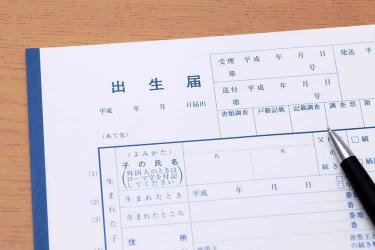 出生届
平成 年 月 日届出
(あて先)
受理 平成 年 月 日
第 号
発送 平
送付 平成 年 月 日
第 号
書類調査 戸籍記載 記載調査 調査票 附
(1)
生まれた子
(よみかた)
子の氏名
(外国人のときは
ローマ字を付記
してください)
氏 名
父
□嫡
(2)
生まれたとき
平成 年 月 日
(3)
生まれたところ
番地
番
住所
世帯主
の氏名